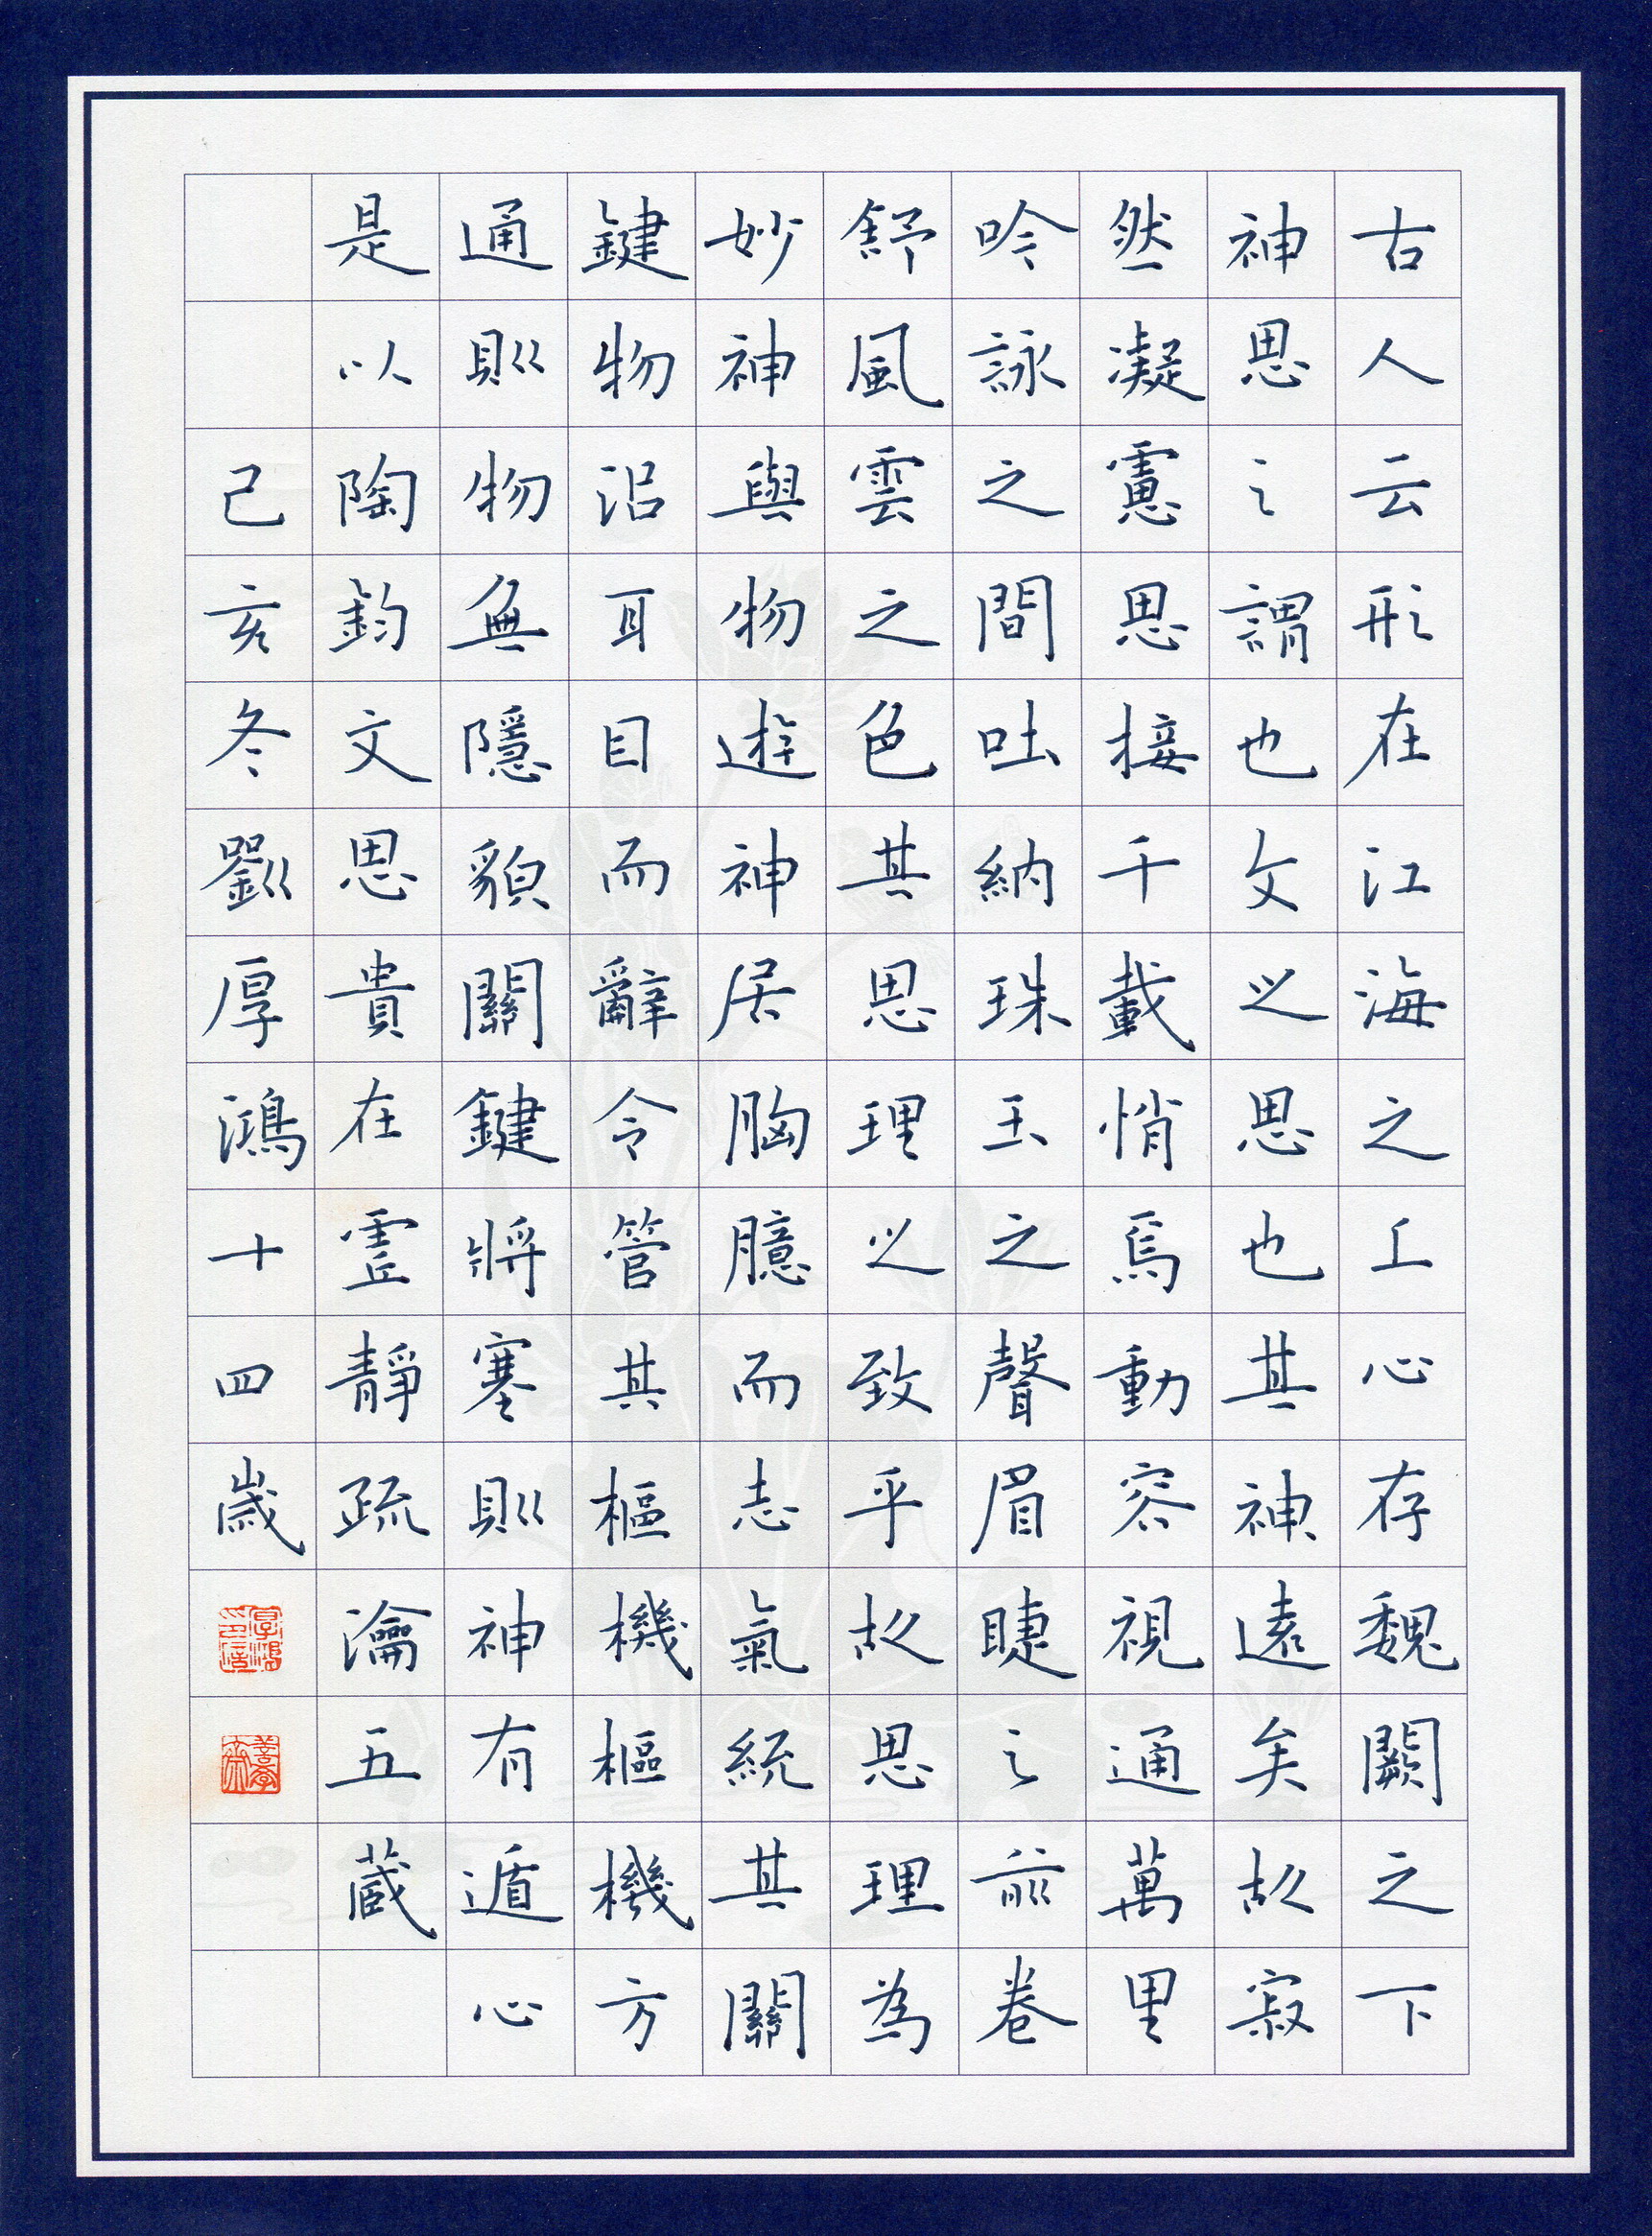 古人云形在江海之上心存魏闕之下
神思之謂也文之思也其神遠矣故寂
然凝慮思接千載悄焉動容視通萬里
吟詠之間吐納珠玉之聲眉睫之前卷
舒風雲之色其思理之致乎故思理為
妙神與物遊神居胸臆而志氣統其關
鍵物沿耳目而辭令管其樞機樞機方
通則物無隱貌關鍵將塞則神有遁心
是以陶鈞文思貴在虛靜疏瀹五藏
己亥冬劉厚鴻十四歲
厚鴻印信